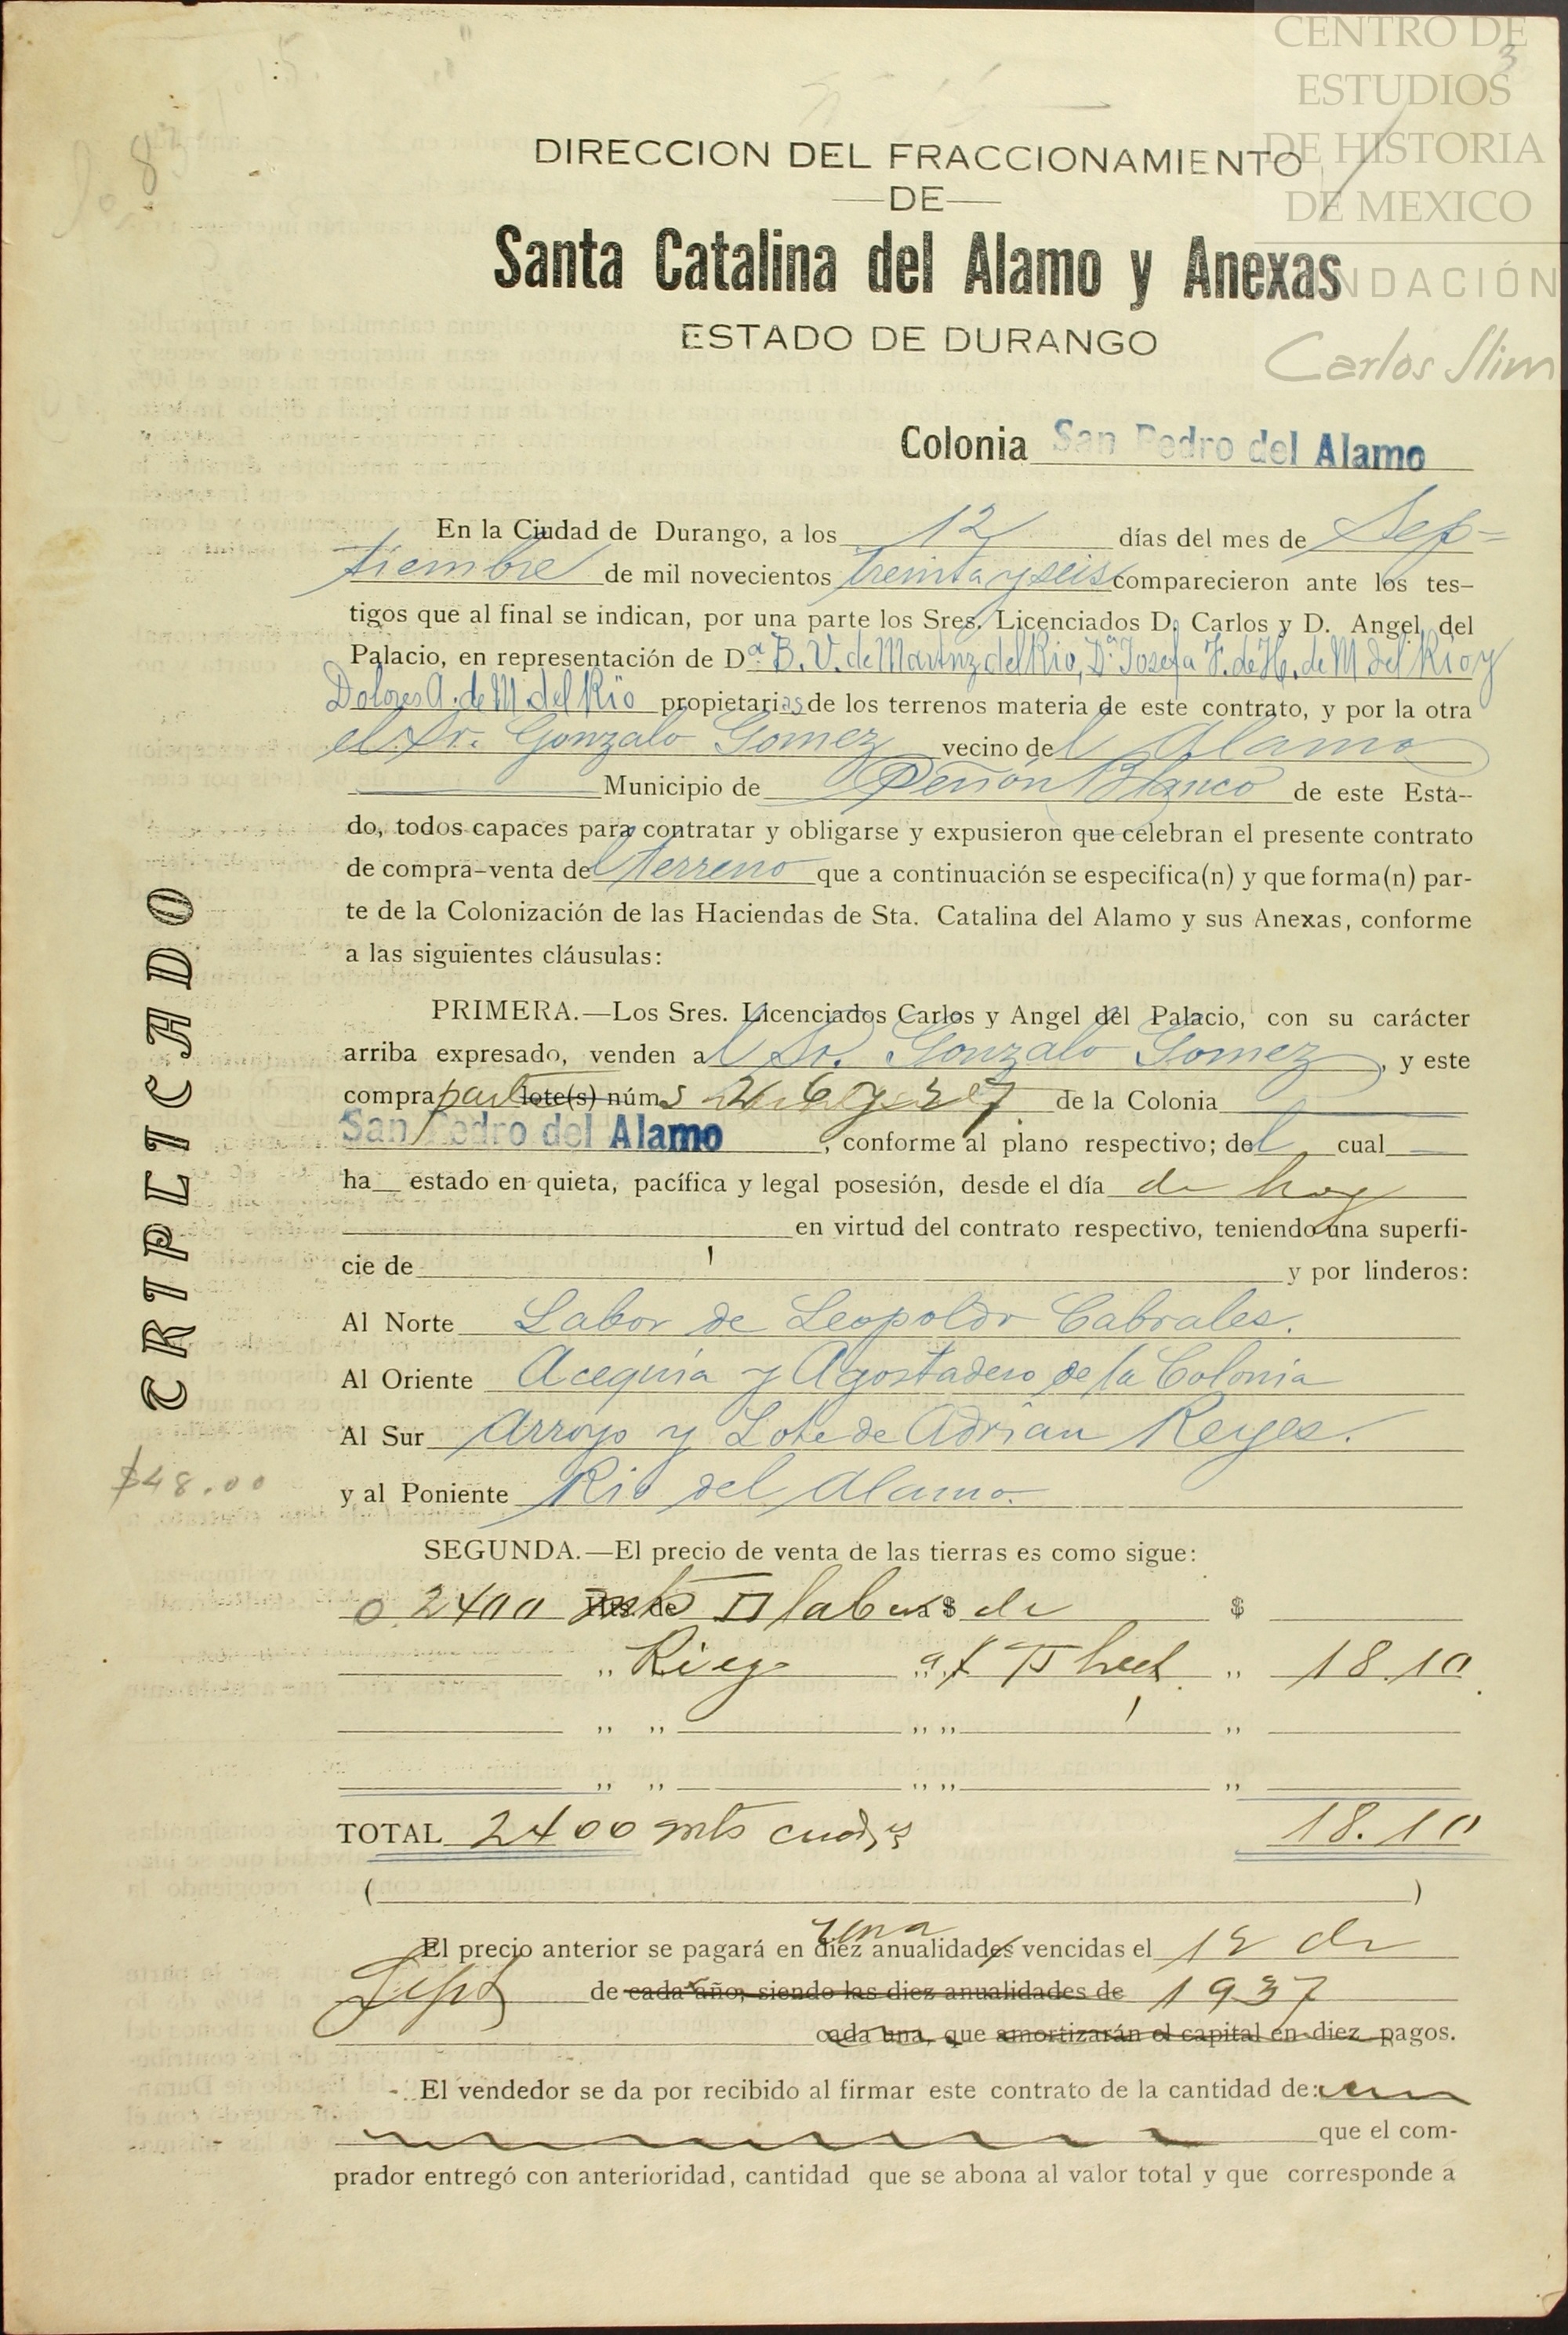 CENTRO DE
ESTUDIOS
DE HISTORIA
DE MEXICO
FUNDACIÓN
Carlos Slim
3
8
DIRECCION DEL FRACCIONAMIENTO
—DE—
Santa Catalina del Alamo y Anexas
ESTADO DE DURANGO
Colonia San Pedro del Alamo
En la Ciudad de Durango, a los 12 días del mes de Sep=
tiembre de mil novecientos treinta y seis comparecieron ante los tes-
tigos que al final se indican, por una parte los Sres. Licenciados D. Carlos y D. Angel del
Palacio, en representación de Dª. B. V. de Martnz del Rio, Dª Josefa F. de H. de M del Rio y
Dolores A. de M. del Rio propietarias de los terrenos materia de este contrato, y por la otra
el Sr. Gonzalo Gomez vecino del Alamo
Municipio de Peñón Blanco de este Esta-
do, todos capaces para contratar y obligarse y expusieron que celebran el presente contrato
de compra-venta del terreno que a continuación se especifica(n) y que forma(n) par-
te de la Colonización de las Haciendas de Sta. Catalina del Alamo y sus Anexas, conforme
a las siguientes cláusulas:
PRIMERA.—Los Sres. Licenciados Carlos y Angel del Palacio, con su carácter
arriba expresado, venden al Sr. Gonzalo Gomez, y este
compra parte lote(s) núms 26 y 27 de la Colonia
San Pedro del Alamo, conforme al plano respectivo; del cual
ha estado en quieta, pacífica y legal posesión, desde el día de hoy
en virtud del contrato respectivo, teniendo una superfi-
cie de y por linderos:
Al Norte Labor de Leopoldo Cabrales.
Al Oriente Acequia y Agostadero de la Colonia
Al Sur Arroyo y Lote de Adrian Reyes.
y al Poniente Rio del Alamo.
TRIPLICADO
$48.00
SEGUNDA.—El precio de venta de las tierras es como sigue:
0.2400 Hs. de labor a $ de $
„ Riego „ a „ 18.10
„ „ „ „ „
„ „ „ „ „
TOTAL 2400 mts cuads 18.10
( )
una
El precio anterior se pagará en diez anualidades vencidas el 12 de
Sept de cada año; siendo las diez anualidades de 1937
cada una, que amortizarán el capital en diez pagos.
El vendedor se da por recibido al firmar este contrato de la cantidad de:
que el com-
prador entregó con anterioridad, cantidad que se abona al valor total y que corresponde a